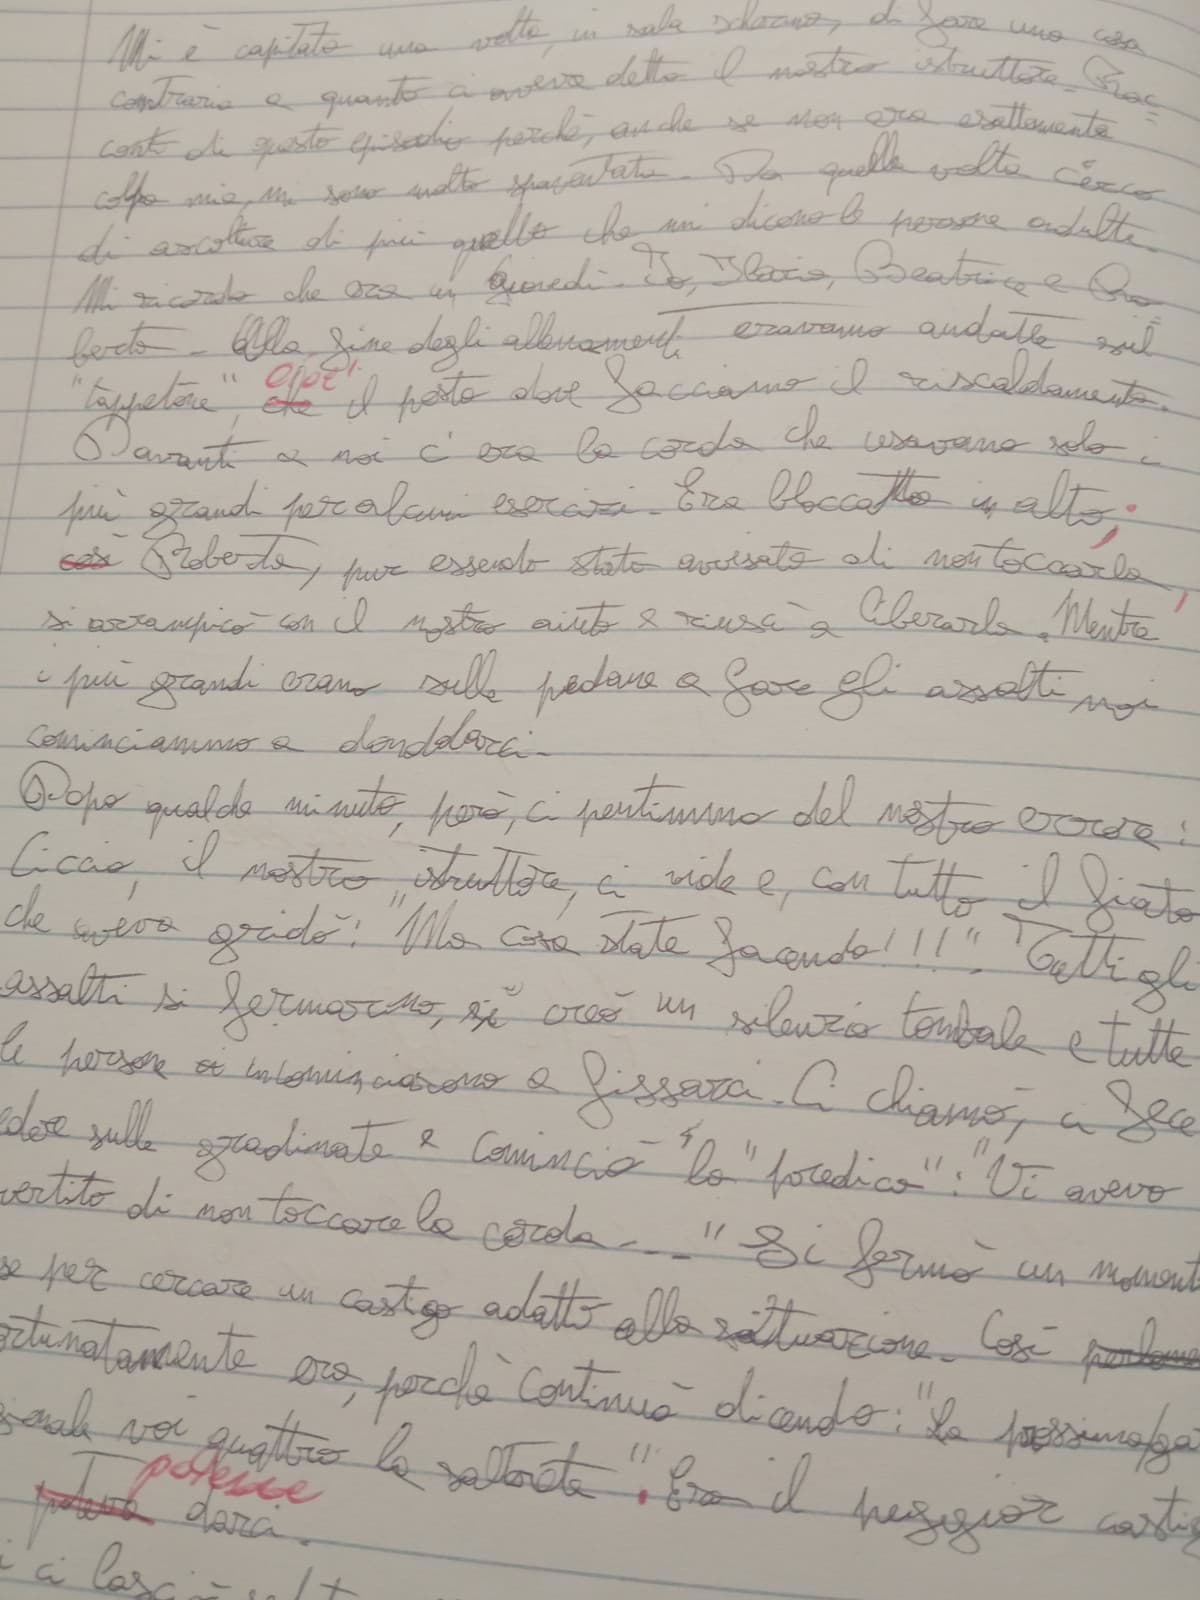 Mi è capitato una volta, in sala scherma, di fare una cosa
contraria a quanto ci aveva detto il nostro istruttore. Rac=
conto di questo episodio perchè, anche se non era esattamente
colpa mia, mi sono molto spaventata. Da quella volta cerco
di ascoltare di più quello che mi dicono le persone adulte.
Mi ricordo che era un giovedì. Io, Ilaria, Beatrice e Ro=
berto. Alla fine degli allenamenti eravamo andatti sul
"tappetone", che cioè il posto dove facciamo il riscaldamento.
Davanti a noi c'era la corda che usavano solo i
più grandi per alcuni esercizi. Era bloccatta in alto;
così Roberto, pur essendo stato avvisato di non toccarla,
si arrampicò con il nostro aiuto e riuscì a liberarla. Mentre
i più grandi erano sulle pedane a fare gli assalti noi
cominciammo a dondolarci.
Dopo qualche minuto, però, ci pentimmo del nostro errore:
Ciccio, il nostro istruttore, ci vide e, con tutto il fiato
che aveva gridò: "Ma cosa state facendo!!!". Tutti gli
assalti si fermarono, si creò un silenzio tombale e tutte
le persone incominciarono a fissarci. Ci chiamò, ci fece
edere sulle gradinate e cominciò la "predica": "Vi avevo
vertito di non toccare la corda ..." Si fermò un moment
se per cercare un castigo adatto alla situazione. Così
ortunatamente era, perchè continuò dicendo: "La prossima ga
gionale voi quattro la saltate". Era il peggior castig
poteva potesse darci.
i ci lasciò